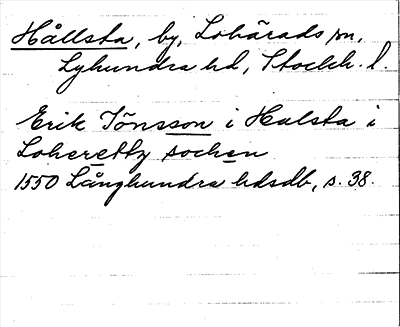 Hållsta, by, Lohärads sn,
Lyhundra hd, Stockh. l.
Erik Jönsson i Halsta i
Loheretty sochen
1550 Långhundra hdsdb, s. 38.